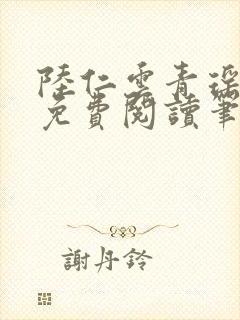 陸仁雲青瑤
免費閱讀筆
謝丹鈴